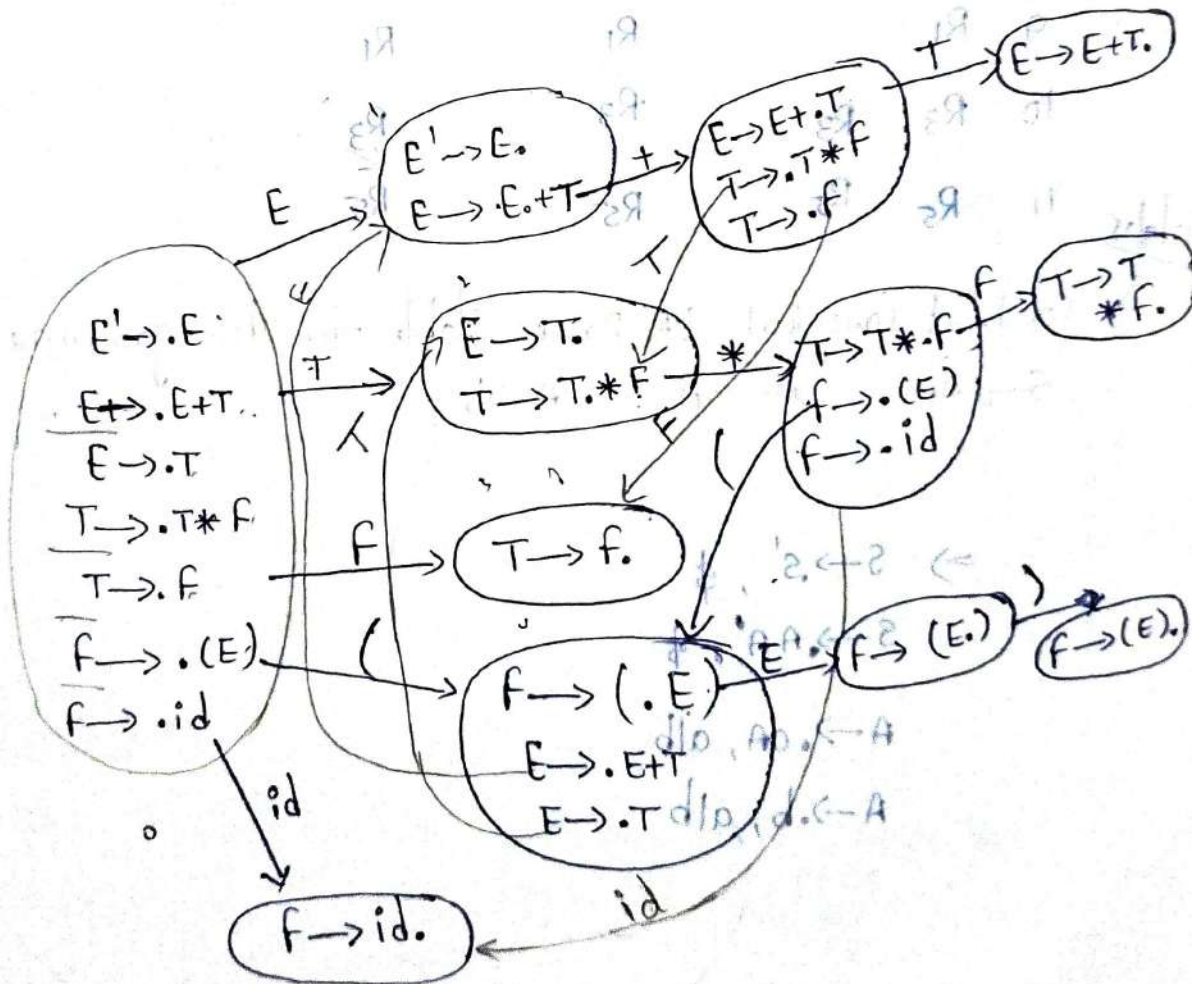 E' → .E
E → .E+T
E → .T
T → .T * F
T → .f
f → .(E)
f → .id
E
E' → E.
E → .E.+T
+
E → E+.T
T → .T * F
T → .f
T
E → E+T.
T
E → T.
T → T. * F
*
T → T * .F
f → .(E)
f → .id
F
T → T
* F.
T
F
F
T → f.
(
(
f → (.E)
E → .E+T
E → .T
E
f → (E.)
)
f → (E).
E
T
id
id
f → id.